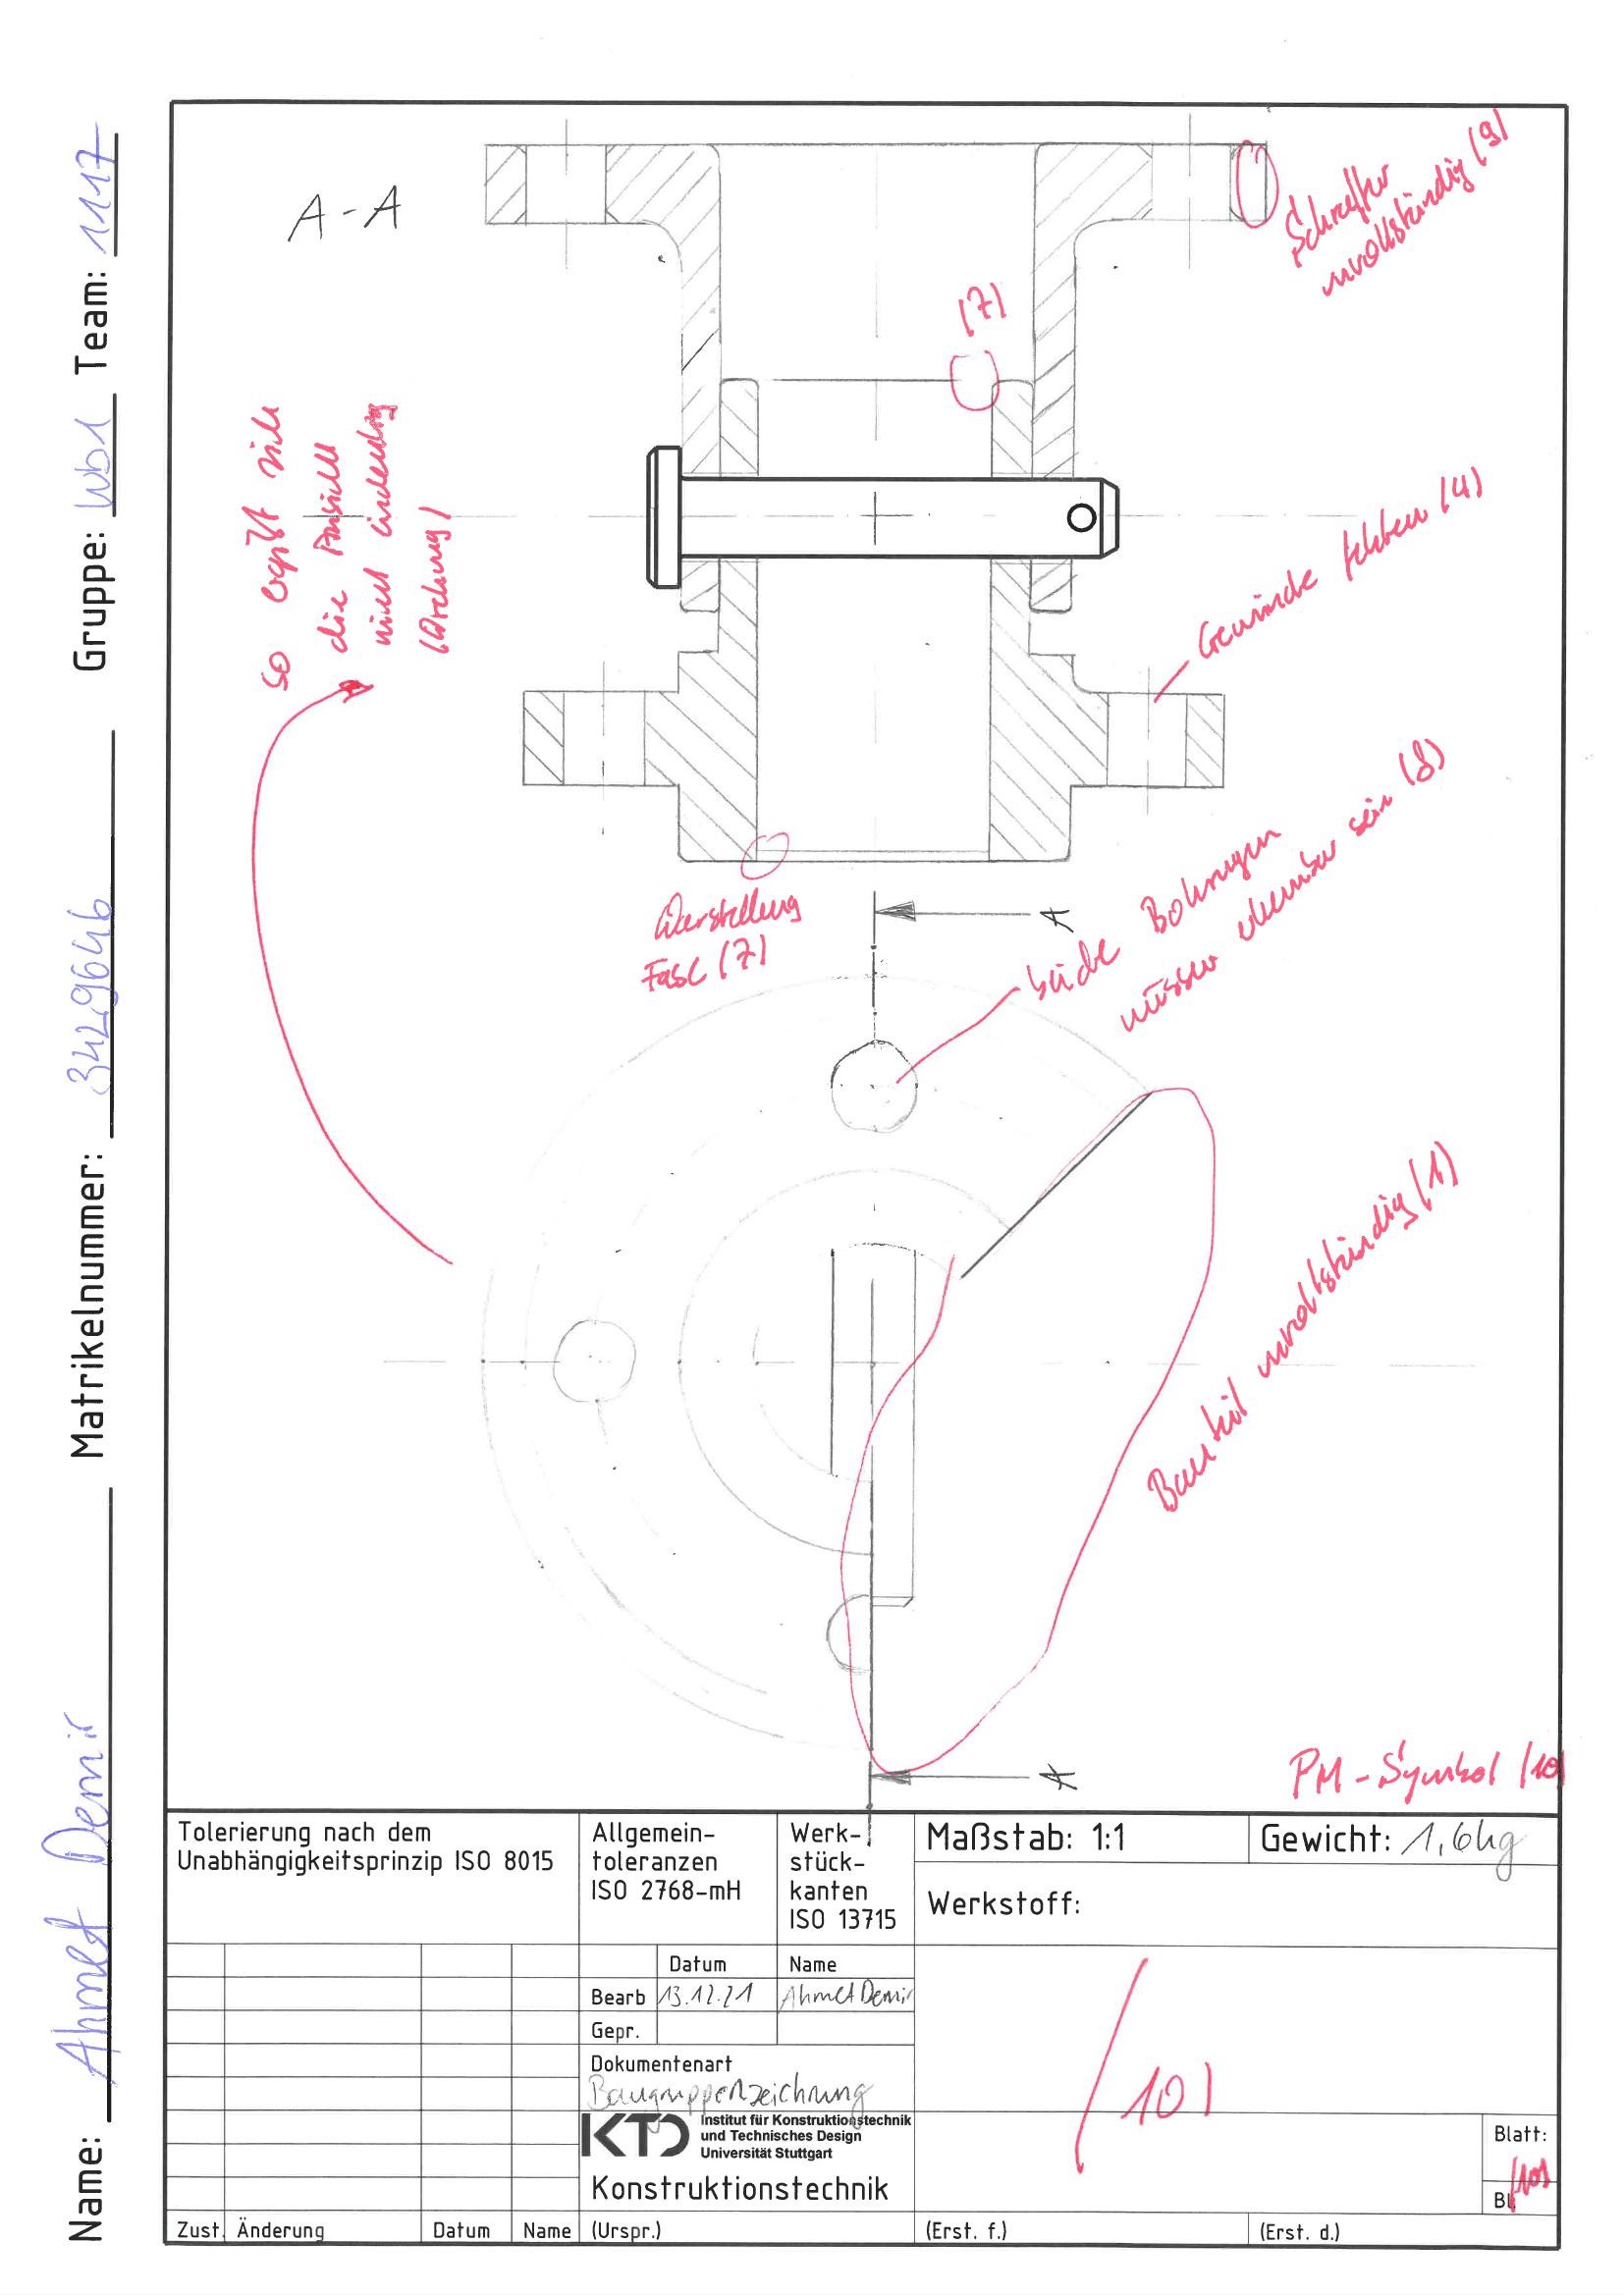 Name: Ahmet Demir Matrikelnummer: 3429646 Gruppe: Wb1 Team: 1117
A-A
Schraffur
unvollständig (9)
(7)
so ergibt sich
die Ansicht
nicht eindeutig
Gewinde fehlen (4)
beide Bohrungen
müssen sein (8)
Darstellung
Fase (7)
A
Bauteil unvollständig (1)
A
PM-Symbol (10)
Tolerierung nach dem
Unabhängigkeitsprinzip ISO 8015
Allgemein-
toleranzen
ISO 2768-mH
Werk-
stück-
kanten
ISO 13715
Maßstab: 1:1
Gewicht: 1,6kg
Werkstoff:
Datum Name
Bearb 13.12.21 Ahmet Demir
Gepr.
Dokumentenart
Baugruppenzeichnung
KTD
Institut für Konstruktionstechnik
und Technisches Design
Universität Stuttgart
Konstruktionstechnik
(10)
Blatt:
(10)
Bl.
Zust. Änderung Datum Name (Urspr.) (Erst. f.) (Erst. d.)